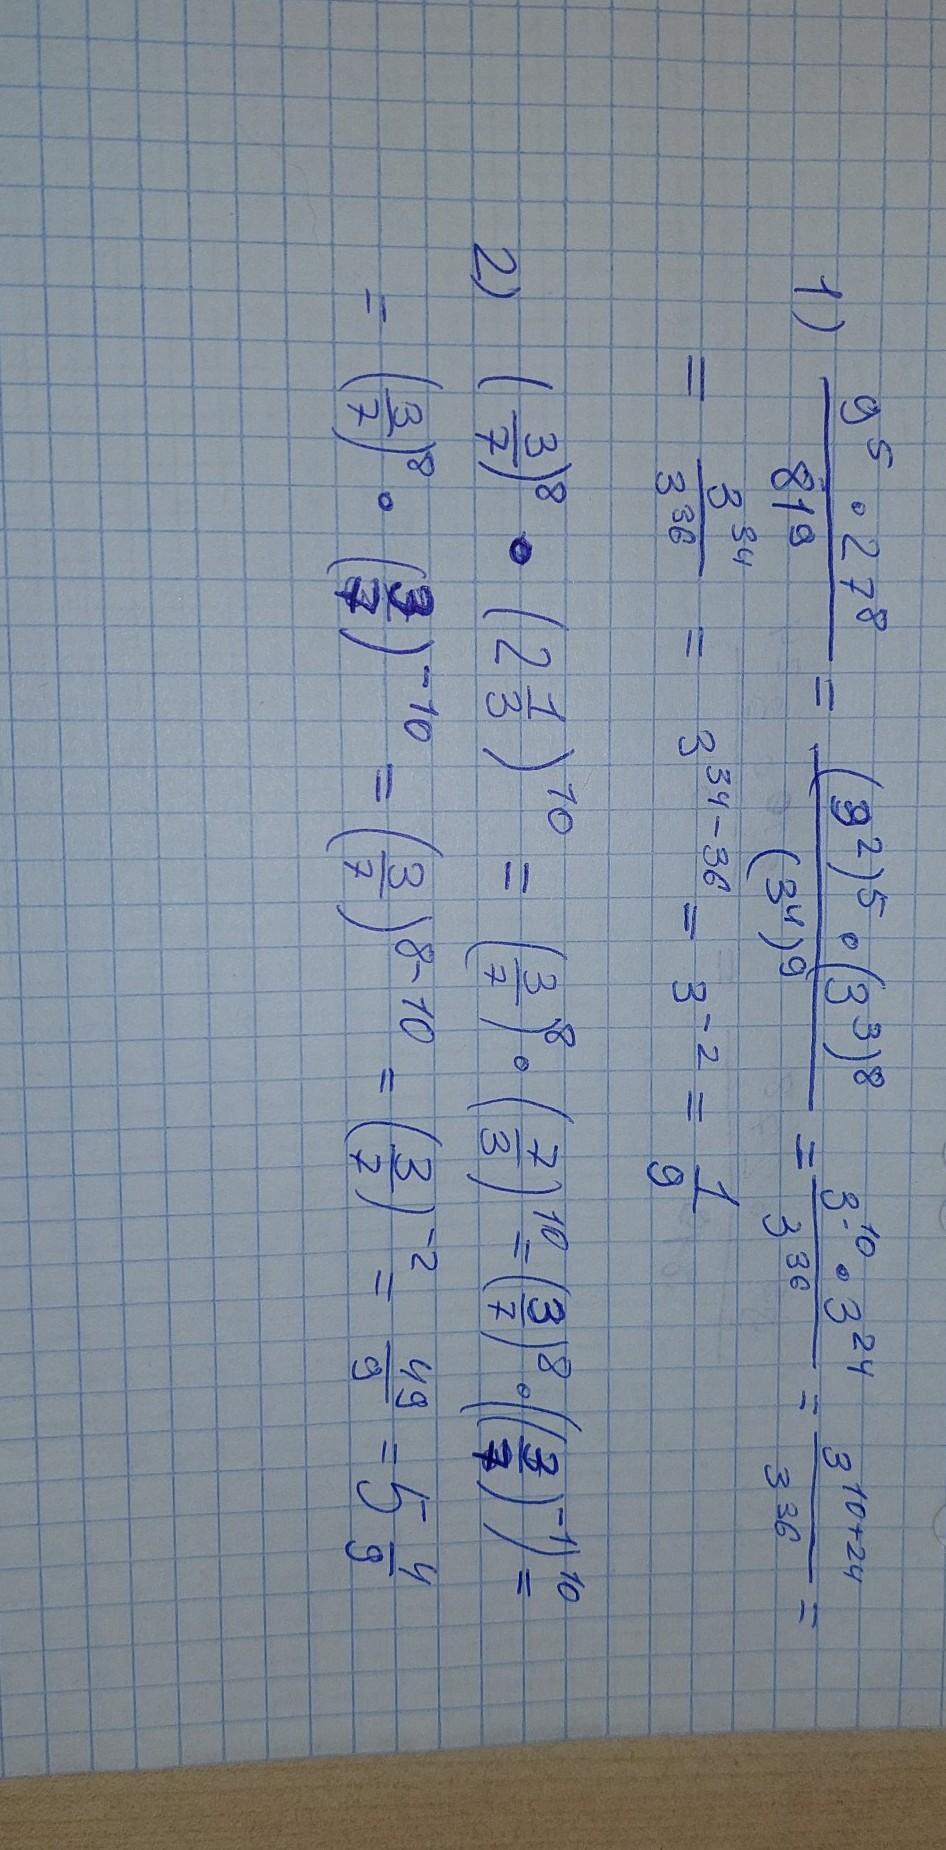 1) 9^5 · 27^8 / 81^9 = (9^2)^5 · (3^3)^8 / (3^4)^9 = 3^10 · 3^24 / 3^36 = 3^10+24 / 3^36 =
= 3^34 / 3^36 = 3^34-36 = 3^-2 = 1/9
2) (3/7)^8 · (2 1/3)^10 = (3/7)^8 · (7/3)^10 = (3/7)^8 · ((3/7)^-1)^10 =
= (3/7)^8 · (3/7)^-10 = (3/7)^8-10 = (3/7)^-2 = 49/9 = 5 4/9